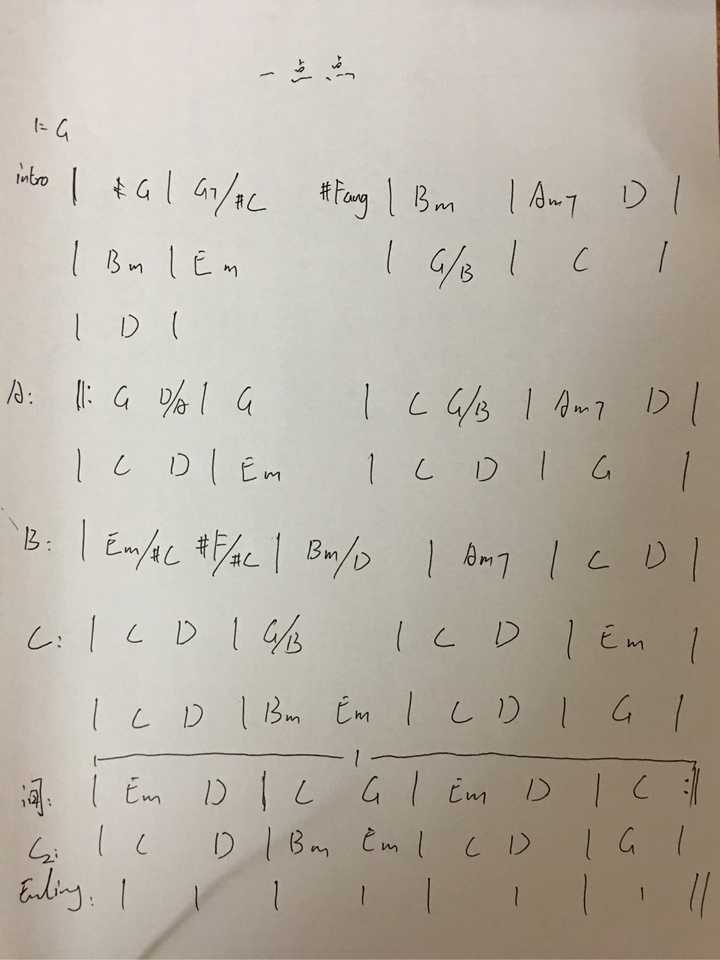 一点点
1=G
intro | G | G7/#C #Faug | Bm | Am7 D |
| Bm | Em | G/B | C |
| D |
A: ‖: G D/A | G | C G/B | Am7 D |
| C D | Em | C D | G |
B: | Em/#C #F/#C | Bm/D | Am7 | C D |
C: | C D | G/B | C D | Em |
| C D | Bm Em | C D | G |
1
间: | Em D | C G | Em D | C :‖
C2: | C D | Bm Em | C D | G |
Ending: | | | | | | | | ‖